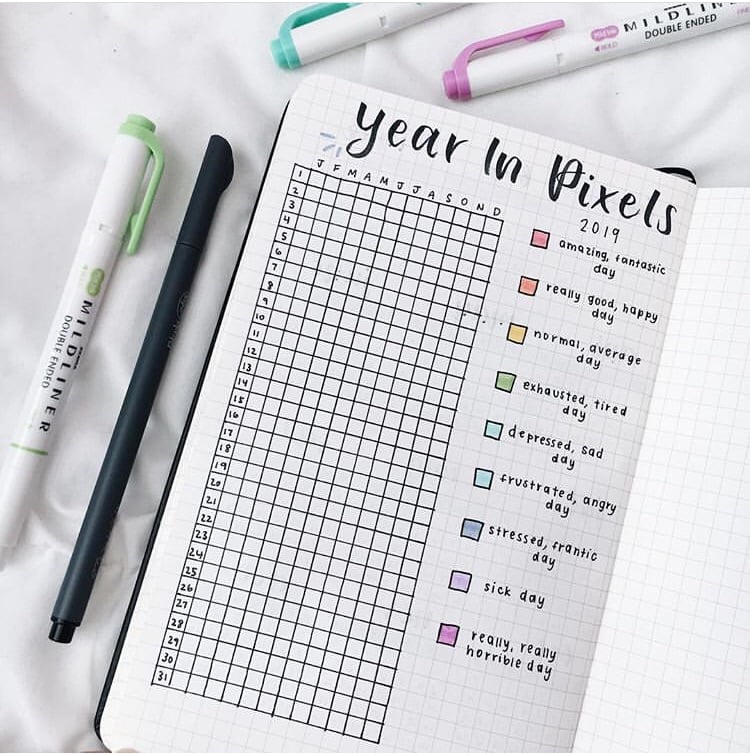 MILDLINER
DOUBLE ENDED
MILDLINER
DOUBLE ENDED
Year In Pixels
2019
J F M A M J J A S O N D
1
2
3
4
5
6
7
8
9
10
11
12
13
14
15
16
17
18
19
20
21
22
23
24
25
26
27
28
29
30
31
amazing, fantastic
day
really good, happy
day
normal, average
day
exhausted, tired
day
depressed, sad
day
frustrated, angry
day
stressed, frantic
day
sick day
really, really
horrible day